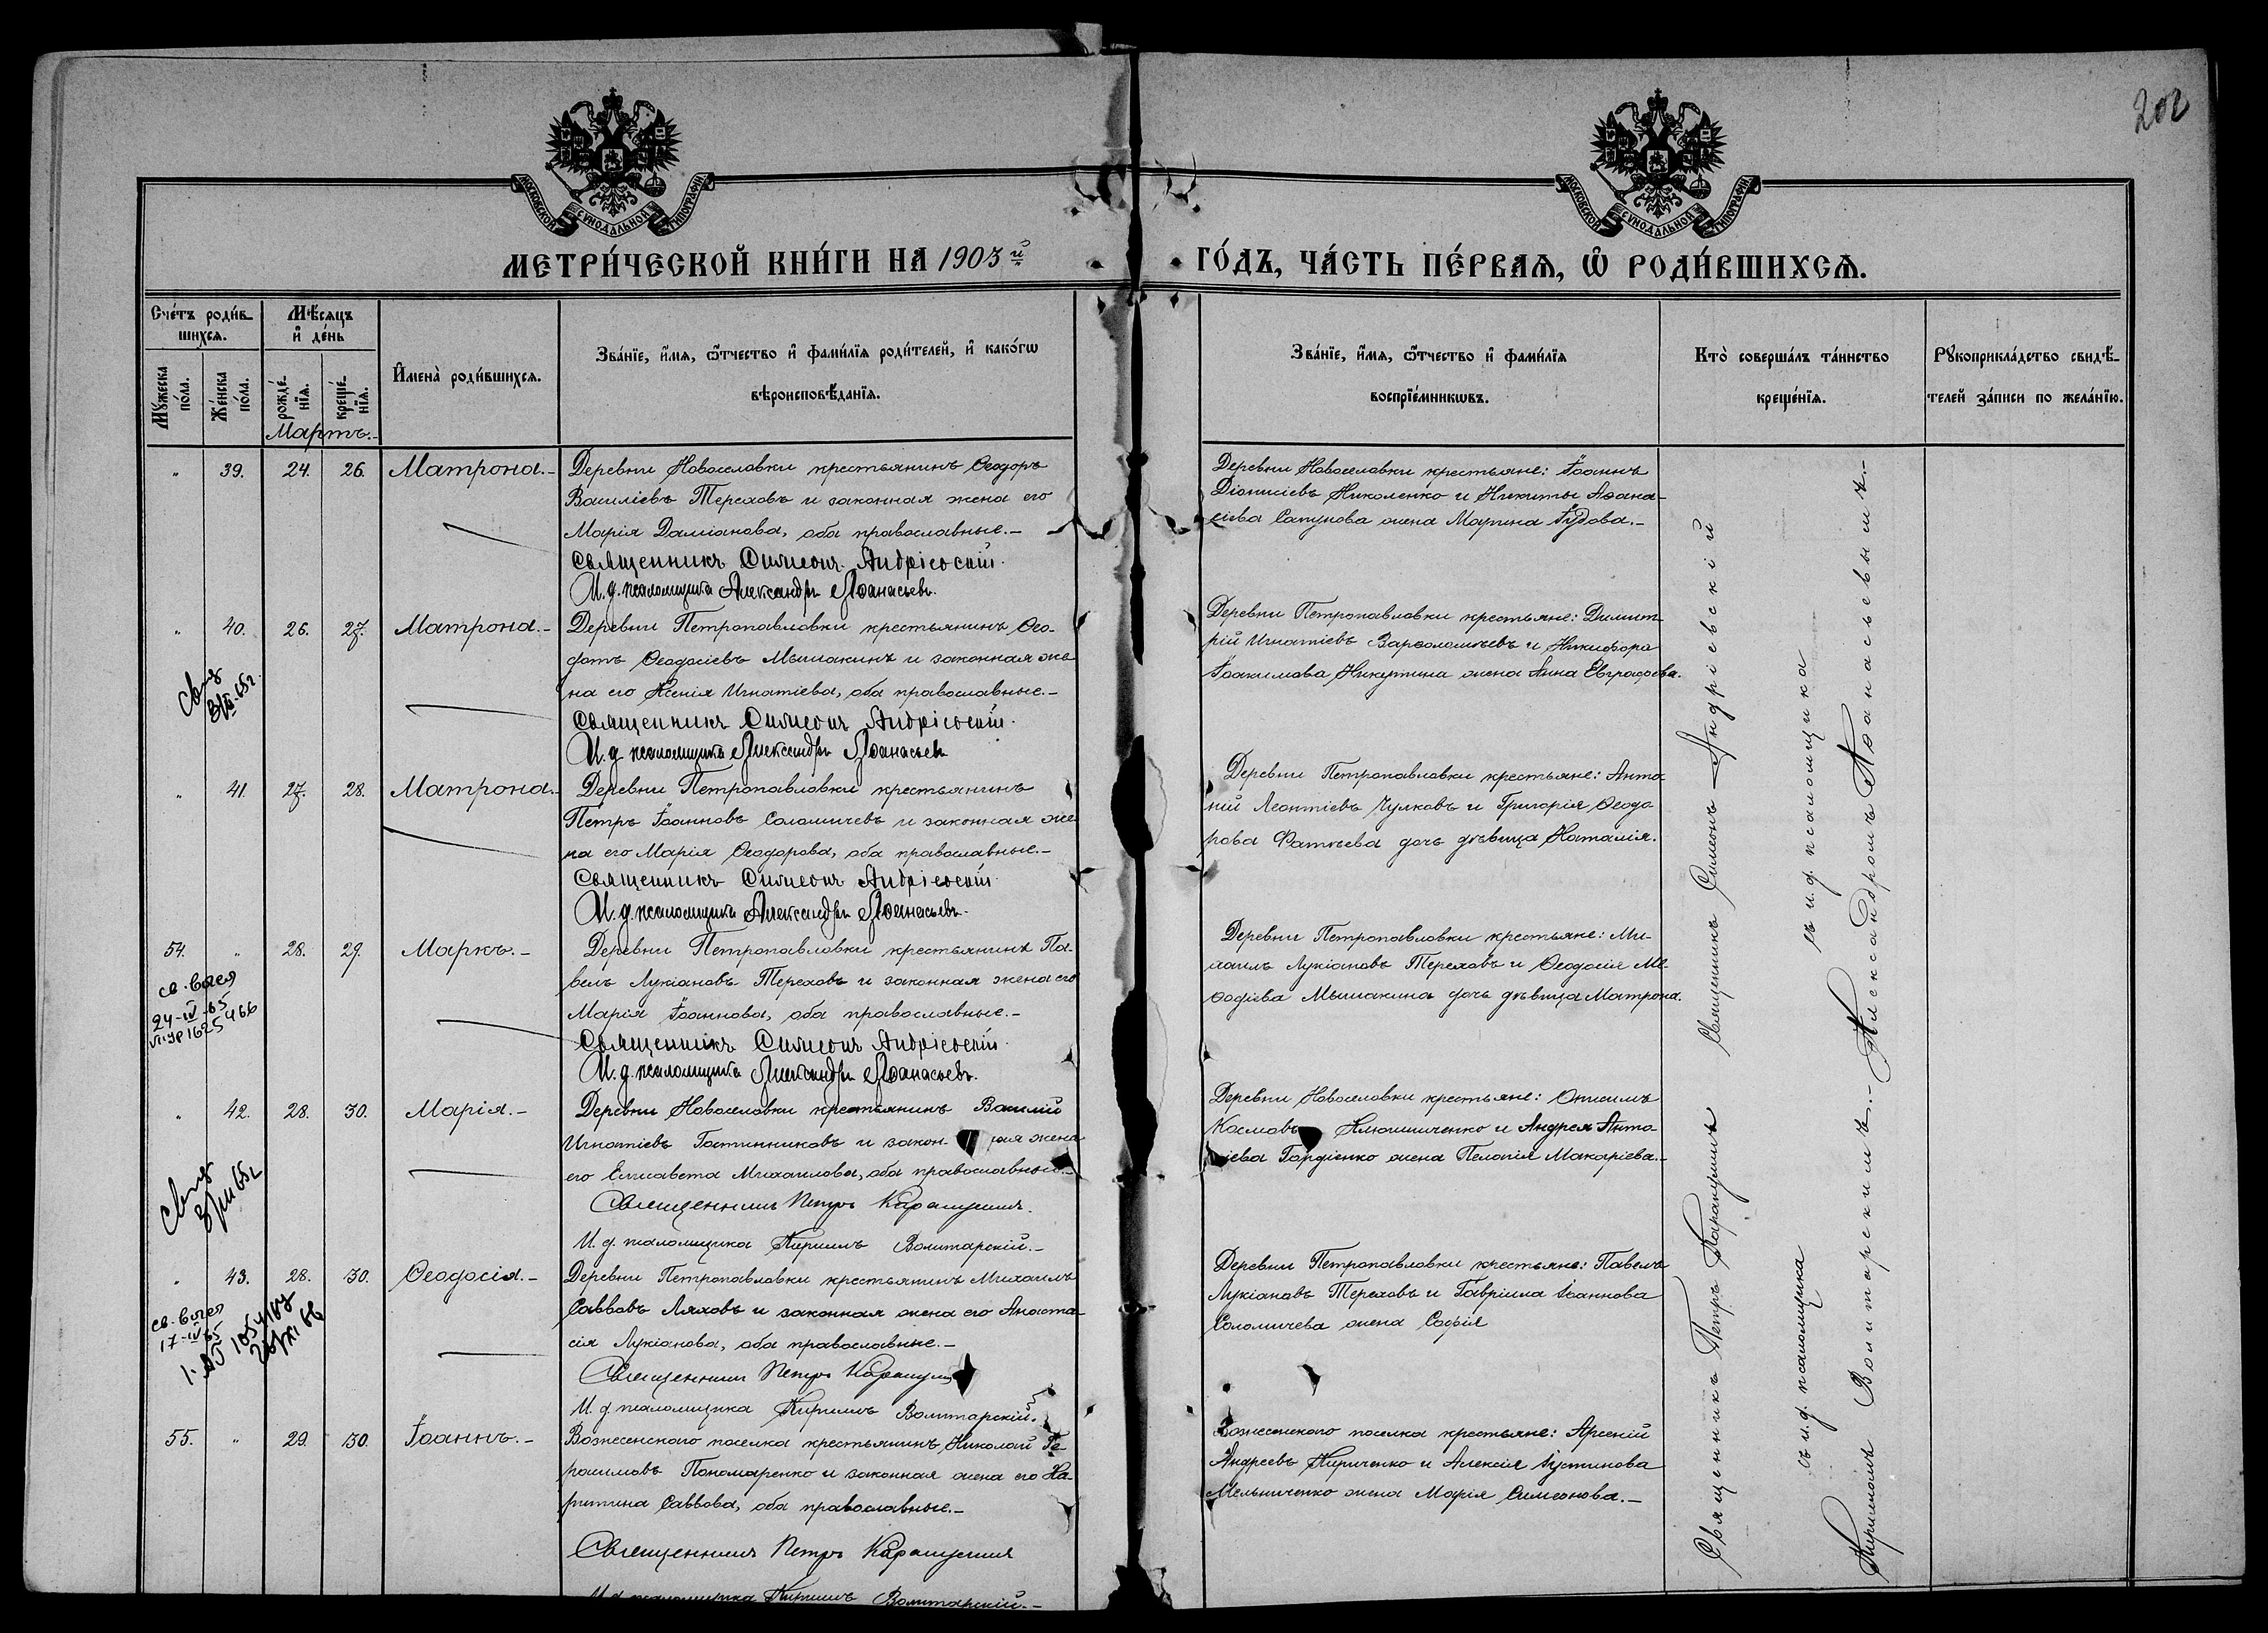 202
МОСКОВСКОЙ СѴНОДАЛЬНОЙ ТИПОГРАФІИ
МОСКОВСКОЙ СѴНОДАЛЬНОЙ ТИПОГРАФІИ
МЕТРИ́ЧЕСКОЙ КНИ́ГИ НА 1903й
ГО́ДЪ, ЧА́СТЬ ПЕ́РВАѦ, Ѽ РОДИ́ВШИХСѦ.
Сче́тъ роди́в-
шихсѧ.
Мѣ́сѧцъ
и҆ де́нь
Мꙋ́жеска
по́ла.
Же́нска
по́ла.
рожде́-
нїѧ.
креще́-
нїѧ.
И҆мена̀ роди́вшихсѧ.
Зва́нїе, и҆́мѧ, ѻ҆́тчество и҆ фами́лїѧ роди́телей, и҆ како́гѡ
вѣроисповѣ́данїѧ.
Зва́нїе, и҆́мѧ, ѻ҆́тчество и҆ фами́лїѧ
воспрїе́мникѡвъ.
Кто̀ соверша́лъ та́инство
креще́нїѧ.
Рꙋкоприкла́дство свидѣ́-
телей за́писи по жела́нїю.
Мартъ.-
" 39. 24. 26. Матрона.-
Деревни Новоселовки крестьянинъ Ѳеодоръ
Василіевъ Тереховъ и законная жена его
Марія Даміанова, оба православные.-
Священникъ Симеонъ Андріевскій.
И. д. псаломщика Александръ Аѳанасьевъ.
Деревни Новоселовки крестьяне: Іоаннъ
Діонисіевъ Николенко и Никиты Аѳана-
сіева Сапунова жена Марина Іудова.-
" 40. 26. 27. Матрона.-
Деревни Петропавловки крестьянинъ Ѳео-
дотъ Ѳеодосіевъ Мышакинъ и законная же-
на его Ксенія Игнатіева, оба православные.-
Священникъ Симеонъ Андріевскій.
И. д. псаломщика Александръ Аѳанасьевъ
Деревни Петропавловки крестьяне: Димит-
рій Игнатіевъ Варѳоломеевъ и Никифора
Іоакимова Никутина жена Анна Евграфова.
" 41. 27. 28. Матрона.-
Деревни Петропавловки крестьянинъ
Петръ Іоанновъ Соломичевъ и законная же-
на его Марія Ѳеодорова, оба православные.-
Священникъ Симеонъ Андріевскій.
И. д. псаломщика Александръ Аѳанасьевъ.
Деревни Петропавловки крестьяне: Анто-
ній Леонтіевъ Чулковъ и Григорія Ѳеодо-
рова Фатеева дочь дѣвица Наталія.
54. " 28. 29. Маркъ.-
св. выдея
24-IV-65
Деревни Петропавловки крестьянинъ Па-
велъ Лукіановъ Тереховъ и законная жена его
Марія Іоаннова, оба православные.-
Священникъ Симеонъ Андріевскій.
И. д. псаломщика Александръ Аѳанасьевъ.
Деревни Петропавловки крестьяне: Ми-
хаилъ Лукіановъ Тереховъ и Ѳеодосія Ме-
ѳодіева Мышакина дочь дѣвица Матрона.
" 42. 28. 30. Марія.-
Деревни Новоселовки крестьянинъ Василій
Игнатіевъ Гостинниковъ и закон- ная жена
его Елисавета Михаилова, оба православные.-
Священникъ Петръ Каракушинъ.
И. д. псаломщика Кириллъ Волитарскій.-
Деревни Новоселовки крестьяне: Онисимъ
Космовъ Клюшниченко и Андрея Анто-
ніева Гордіенко жена Пелагія Макаріева.-
" 43. 28. 30. Ѳеодосія.-
Деревни Петропавловки крестьянинъ Михаилъ
Саввовъ Ляховъ и законная жена его Анаста-
сія Лукіанова, оба православные.-
Священникъ Петръ Каракуши
И. д. псаломщика Кириллъ Волитарскій.
Деревни Петропавловки крестьяне: Павелъ
Лукіановъ Тереховъ и Гавріила Іоаннова
Соломичева жена Софія
св. выдея
17-IV-65
55. " 29. 30. Іоаннъ.-
Вознесенскаго поселка крестьянинъ Николай Ге-
расимовъ Пономаренко и законная жена его Ха-
ритина Саввова, оба православные.-
Священникъ Петръ Каракушинъ
И. д. псаломщика Кириллъ Волитарскій.-
Вознесенскаго поселка крестьяне: Арсеній
Андреевъ Кириченко и Алексія Іустинова
Мельниченко жена Марія Симеонова.-
Священникъ Симеонъ Андріевскій
съ и. д. псаломщика
Александромъ Аѳанасьевымъ.-
Священникъ Петръ Каракушинъ
съ и. д. псаломщика
Кирилломъ Волитарскимъ.-